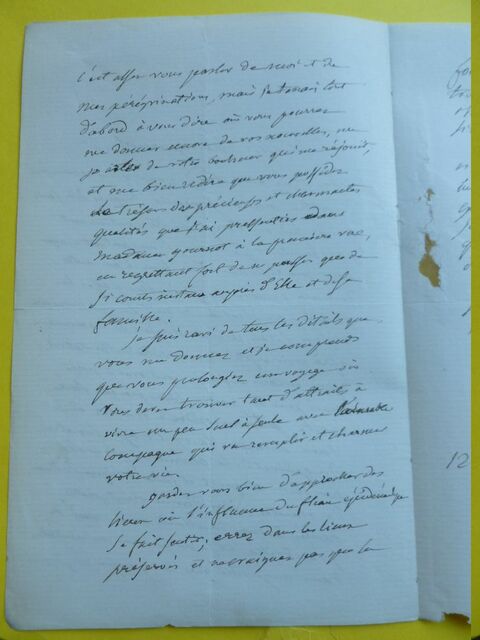 C'est assez vous parler de moi et de
mes pérégrinations, mais je tenais tout
d'abord à vous dire où vous pourrez
me donner encore de vos nouvelles, me
de votre bonheur qui me réjouit,
et me bien redire que vous possédez
le trésor des précieuses et charmantes
qualités que j'ai pressenties dans
Madame à la première vue,
en regrettant fort de ne passer que de
si courts instans auprès d'Elle et de sa
famille.
Je suis ravi de tous les détails que
vous me donnez et je comprends
que vous prolongiez un voyage où
vous devez trouver tant d'attrait, à
vivre un peu seul à seule avec l'aimable
compagne qui va remplir et charmer
votre vie.
gardez vous bien d'approcher des
lieux où l'influence du fléau épidémique
se fait sentir, errez dans les lieux
préservés et ne craignez pas que la
12